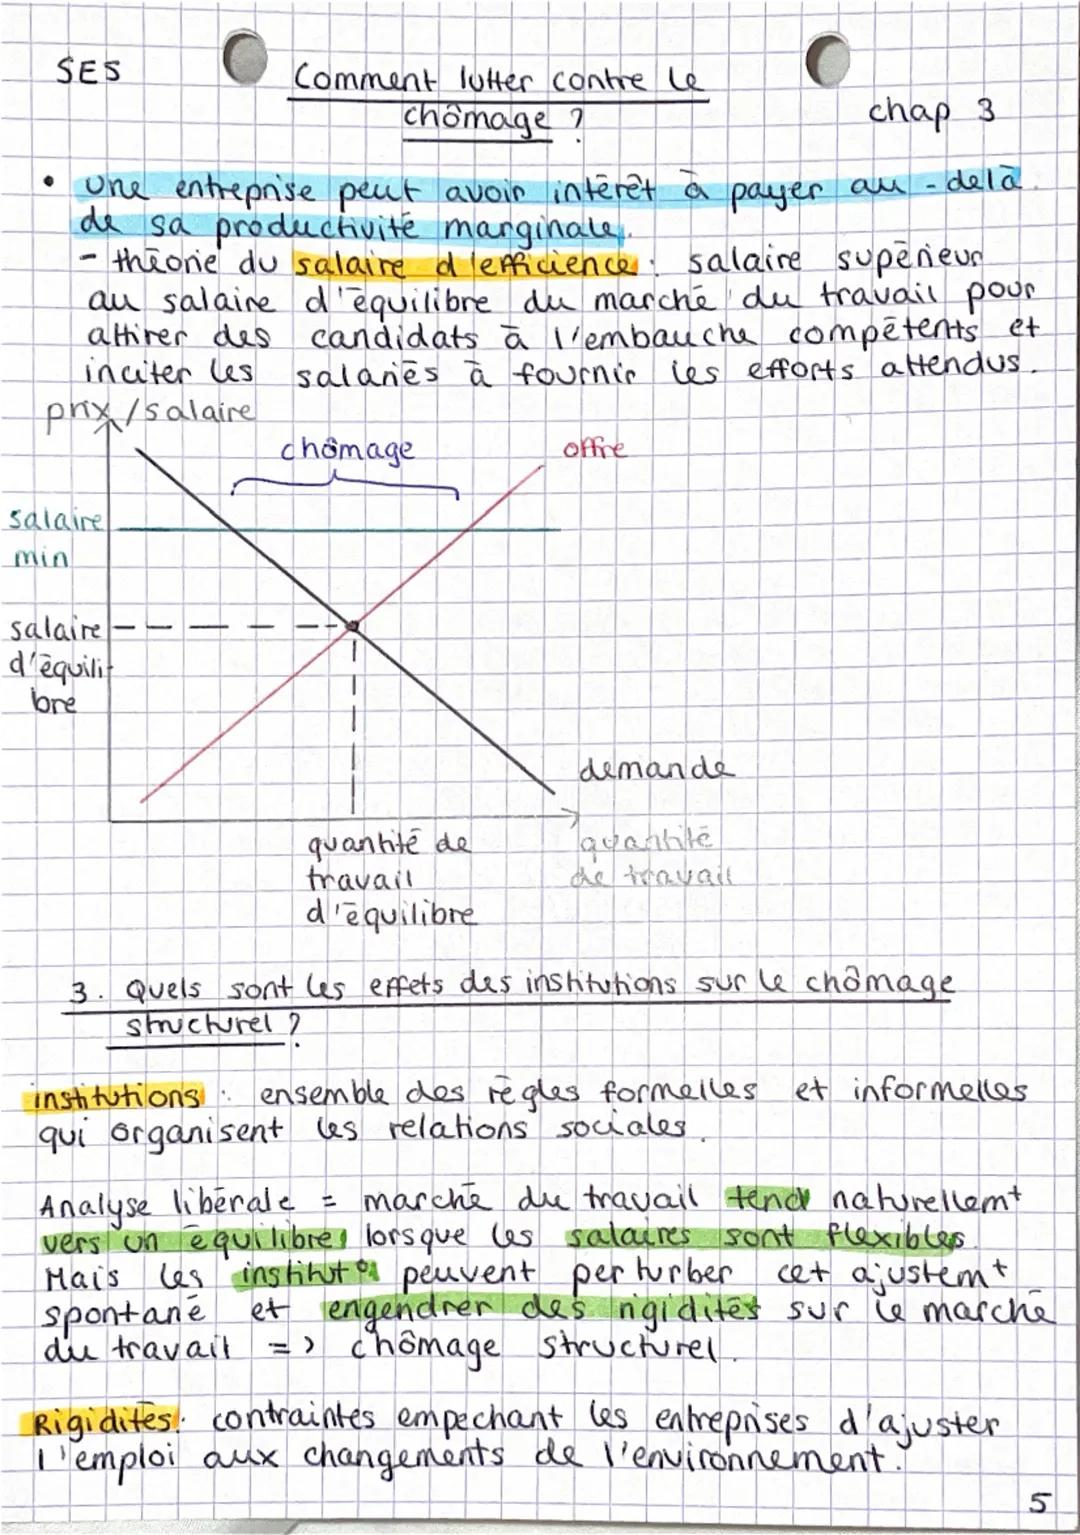 SES
Comment lutter contre le
chômage ?
chap 3
• Une entreprise peut avoir intérêt à payer au-delà
de sa productivité marginale.
- théorie du salaire d'efficience : salaire supérieur
au salaire d'équilibre du marché du travail pour
attirer des candidats à l'embauche compétents et
inciter les salariés à fournir les efforts attendus.
prix/salaire
chômage
offre
salaire
min
salaire
d'équili
bre
demande
quantité de
travail
d'équilibre
quantité
de travail
3. Quels sont les effets des institutions sur le chômage
structurel ?
institutions : ensemble des règles formelles et informelles
qui organisent les relations sociales.
Analyse libérale = marché du travail tend naturellemt
vers un équilibre lorsque les salaires sont flexibles.
Mais les institut° peuvent perturber cet ajustemt
spontané et engendrer des rigidités sur le marché
du travail => chômage structurel.
Rigidités : contraintes empechant les entreprises d'ajuster
l'emploi aux changements de l'environnement.
5